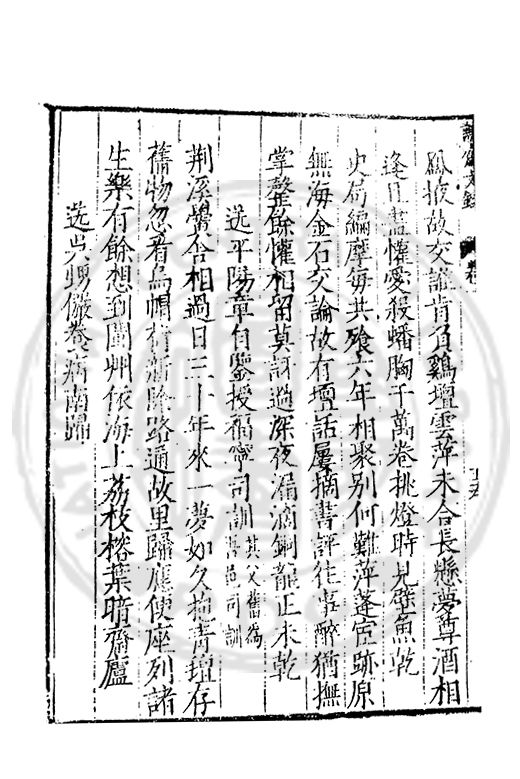 風掖故交誰肯負鷄壇雲萍未合長懸夢尊酒相
逢且盡懽愛殺蟠胸千萬卷挑燈時見壁魚乾
史局編摩每共飱六年相聚別何難萍蓬宦跡原
無海金石交論故有壇話屢摘書評往事醉猶撫
掌罄餘懽相留莫訝過深夜漏滴銅龍正未乾
送平陽章自鑒授福寧司訓其父舊為
司訓
荆溪黌舍相過日三十年來一夢如久抱青氊存
舊物忽看烏帽有新除路通故里歸應便座列諸
生樂有餘想到閩州依海上荔枝榕葉暗齋廬
送吳甥儼卷病南歸